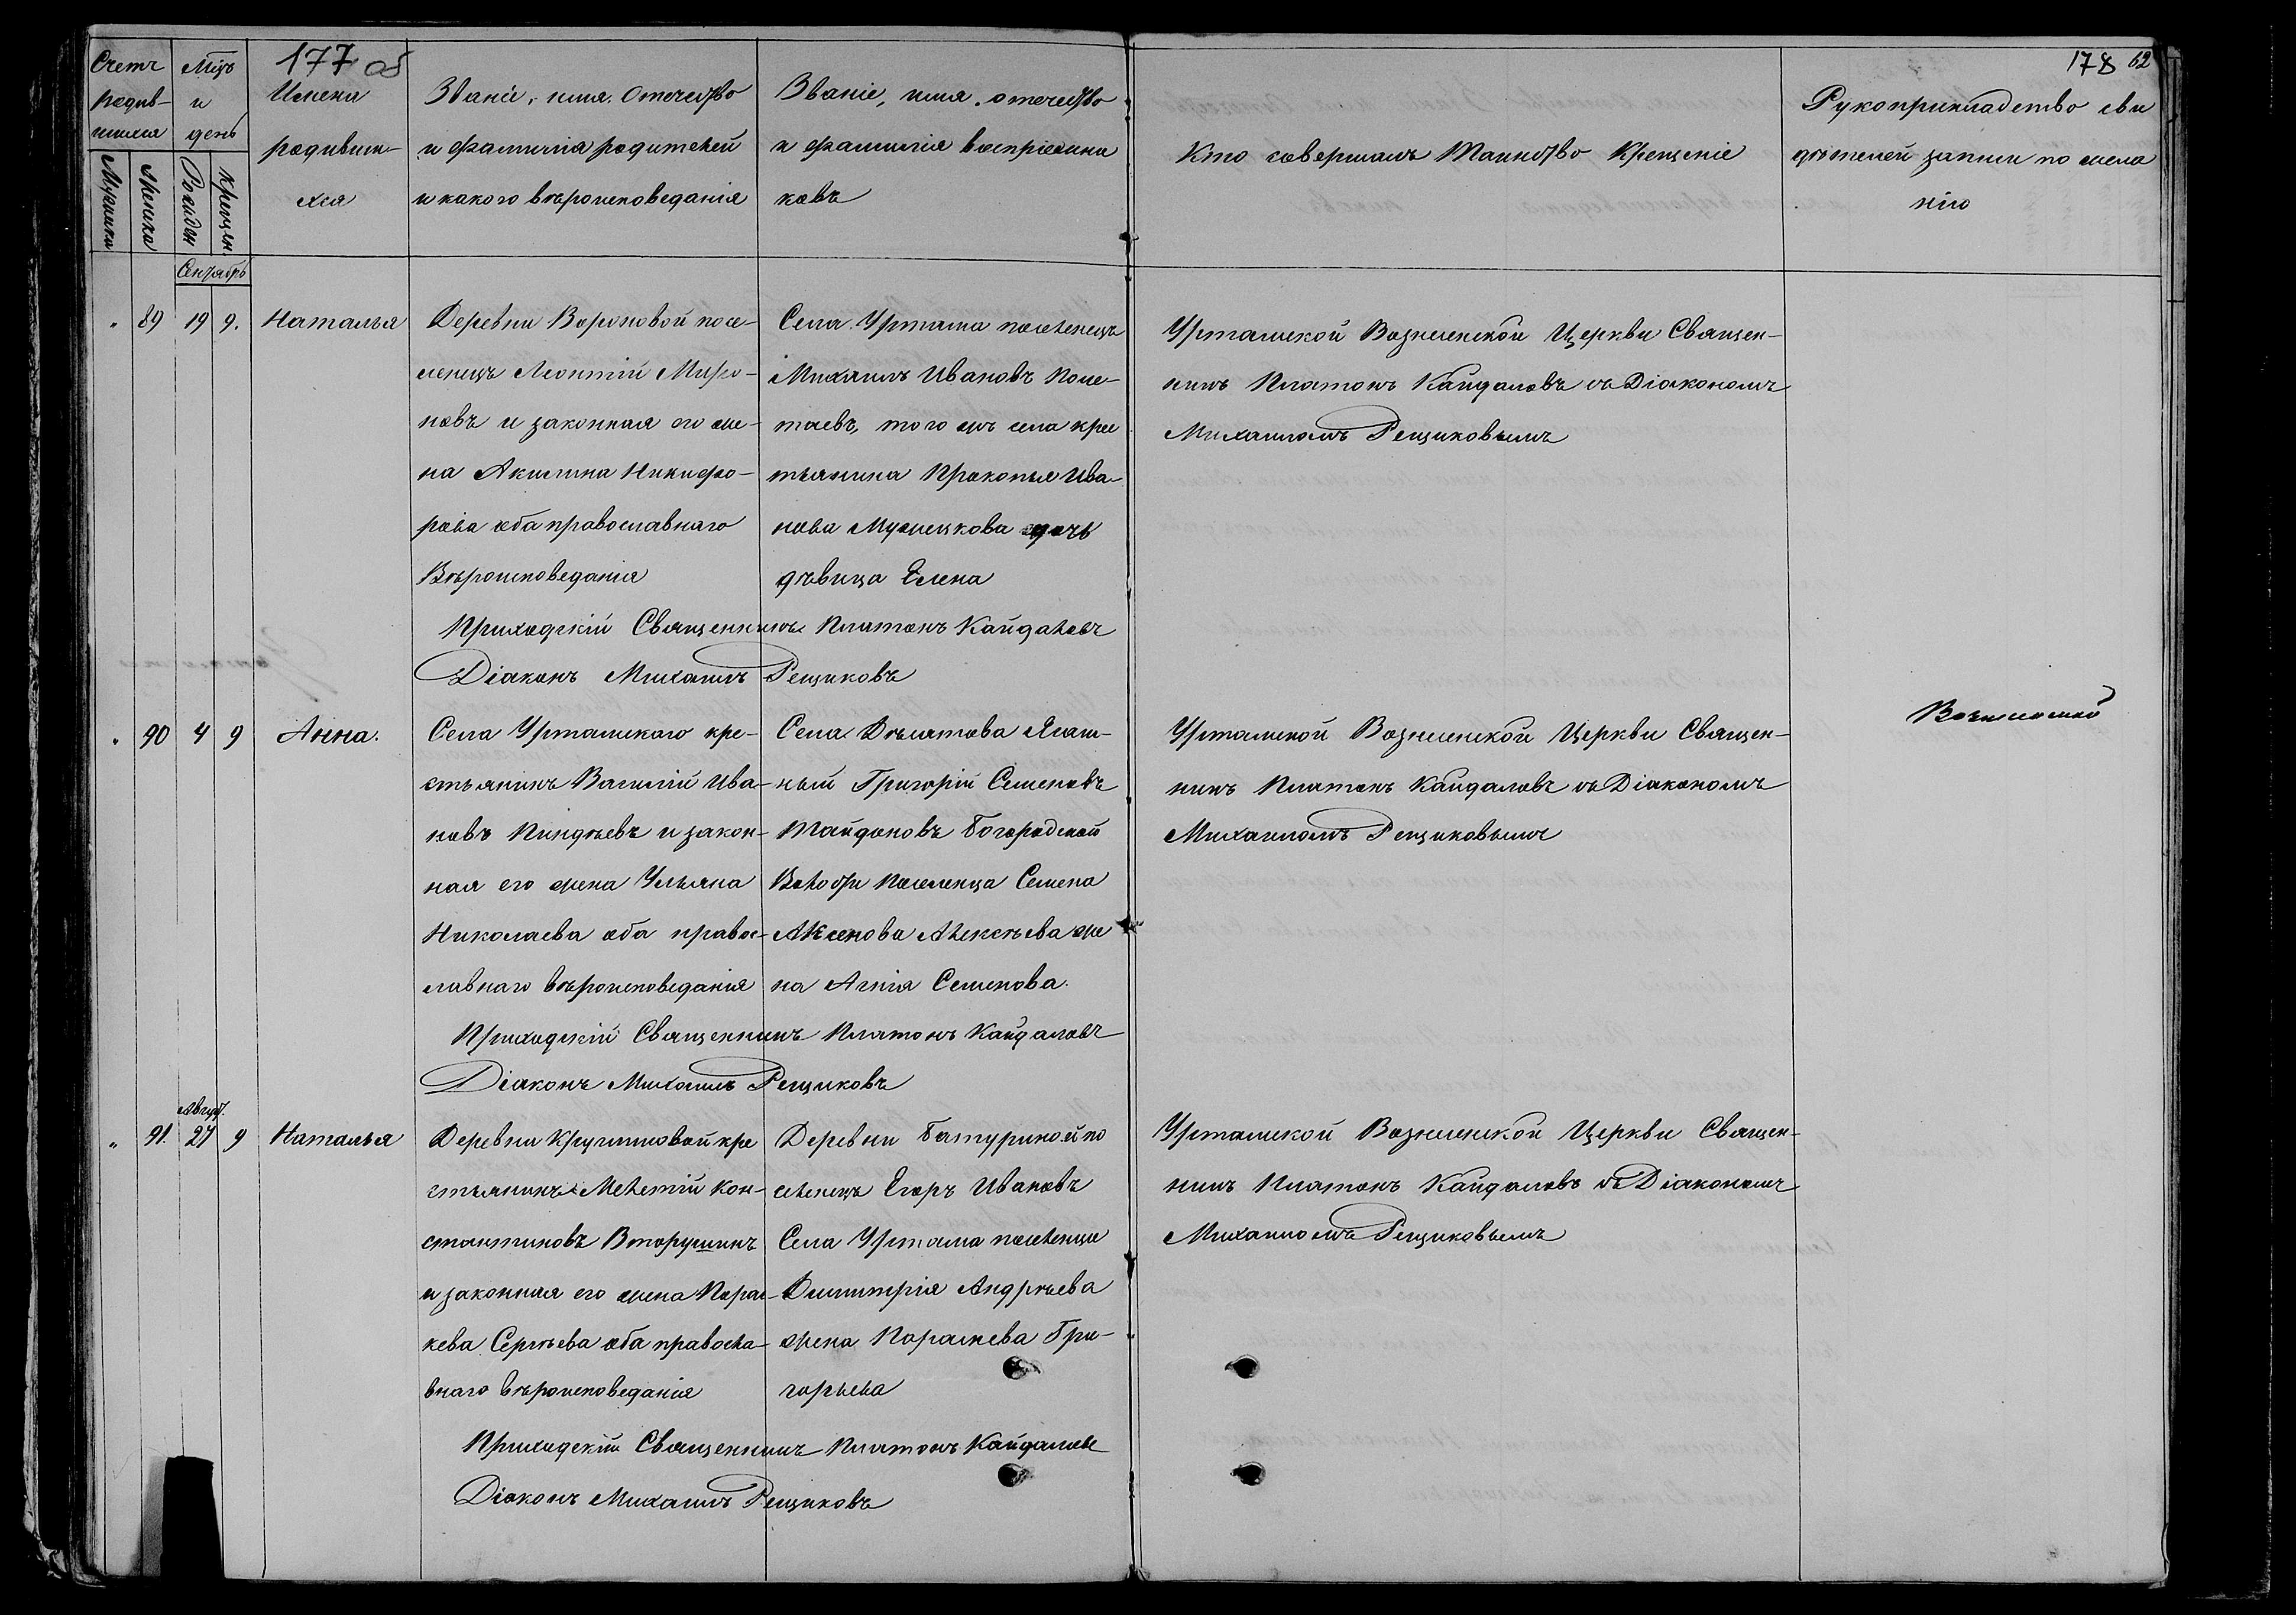 177 об
178 62
Счетъ родив-шихся
Мужска
Женска
Мѣць и день
Рожден
Крещен
Имена родивших-хся
Званіе, имя. Отечество
и фамилія родителей
и какого вѣроисповеданія
Званіе, имя. отечество
и фамилія воспріемни
ковъ
Кто совершалъ Таинство Крещеніе
Рукоприкладство сви
дѣтелей записи по жела
нію
Сентябрь
" 89 19 9. Наталья
Деревни Вороновой посе-
ленецъ Леонтій Миро-
новъ и законная его же-
на Акилина Никифо-
рова оба православнаго
Вѣроисповеданія
Села Уртама поселенецъ
Михаилъ Ивановъ Поле-
таевъ, того жъ села крес
тьянина Прокопья Ива-
нова Мужецкова дочь
дѣвица Елена
Уртамской Вознесенской Церкви Священ-
никъ Платонъ Кайдаловъ съ Діакономъ
Михаиломъ Рещиковымъ
Приходскій Священникъ Платонъ Кайдаловъ
Діаконъ Михаилъ Рещиковъ
" 90 4 9 Анна.
Села Уртамскаго кре-
стьянинъ Василій Ива-
новъ Пиндѣевъ и закон-
ная его жена Ульяна
Николаева оба правос-
лавнаго вѣроисповеданія
Села Десятова Ясаш-
ный Григорій Семеновъ
Тайдоновъ Богородской
Волости Поселенца Семена
Аксенова Алексѣева же
на Агнія Семенова.
Уртамской Вознесенской Церкви Священ-
никъ Платонъ Кайдаловъ съ Діакономъ
Михаиломъ Рещиковымъ
Приходскій Священникъ Платонъ Кайдаловъ
Діаконъ Михаилъ Рещиковъ
Август.
" 91. 27 9 Наталья
Деревни Кругликовой кре
стьянинъ Мелетій Кон-
стантиновъ Вторушинъ
и законная его жена Парас-
кева Сергѣева оба правосла-
внаго вѣроисповеданія
Деревни Батуриной по
селенецъ Егоръ Ивановъ
Села Уртама поселенца
Димитрія Андрѣева
жена Параскева Гри-
горьева
Уртамской Вознесенской Церкви Священ-
никъ Платонъ Кайдаловъ съ Діакономъ
Михаиломъ Рещиковымъ
Приходскій Священникъ Платонъ Кайдаловъ
Діаконъ Михаилъ Рещиковъ